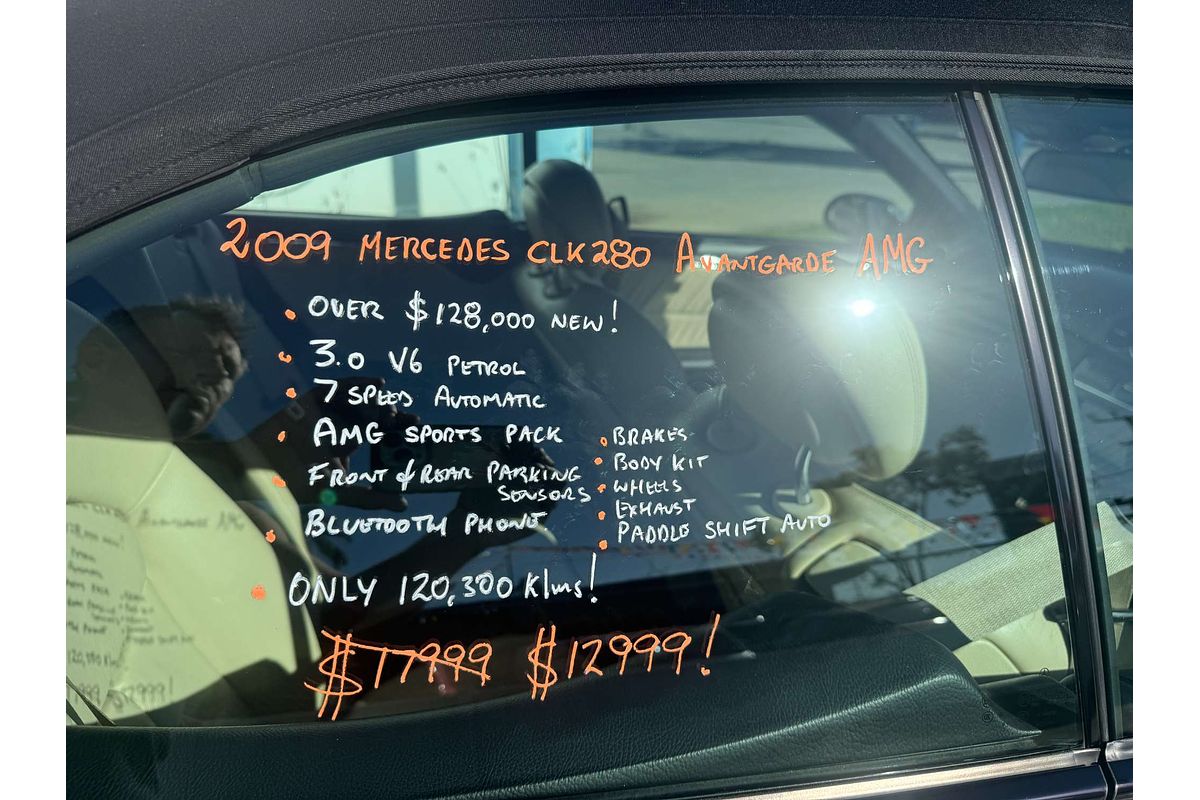 2009 MERCEDES CLK280 AVANTGARDE AMG
• OVER $128,000 NEW!
• 3.0 V6 PETROL
• 7 SPEED AUTOMATIC
• AMG SPORTS PACK
• FRONT & REAR PARKING
SENSORS
• BLUETOOTH PHONE.
• BRAKES
• BODY KIT
• WHEELS
• EXHAUST
• PADDLE SHIFT AUTO
• ONLY 120,300 Klms!
$17999 $12999!